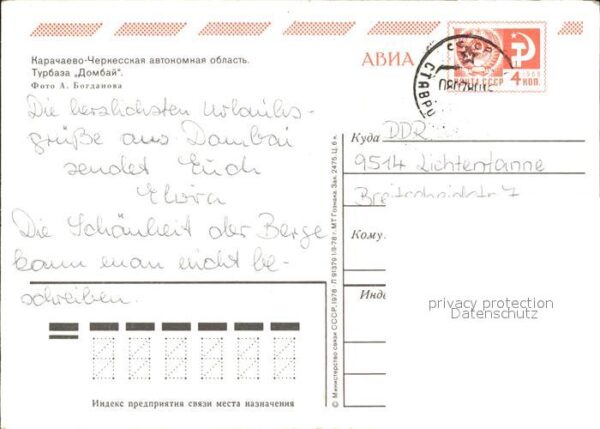 Карачаево-Черкесская автономная область.
Турбаза „Домбай".
Фото А. Богданова
АВИА
ПОЧТА СССР
4 КОП.
1966
СССР
СТАВРО
Die herzlichsten Urlaubs-
grüße aus Dombai
sendet Euch
Elvira
Die Schönheit der Berge
kann man nicht be-
schreiben.
Куда DDR
9514 Lichtentanne
Breitscheidstr 7
Кому
Инде
privacy protection
Datenschutz
© Министерство связи СССР, 1978 Л 91379 I/II-78 г. МТ Гознака. Зак. 2475. Ц. 6 к.
Индекс предприятия связи места назначения